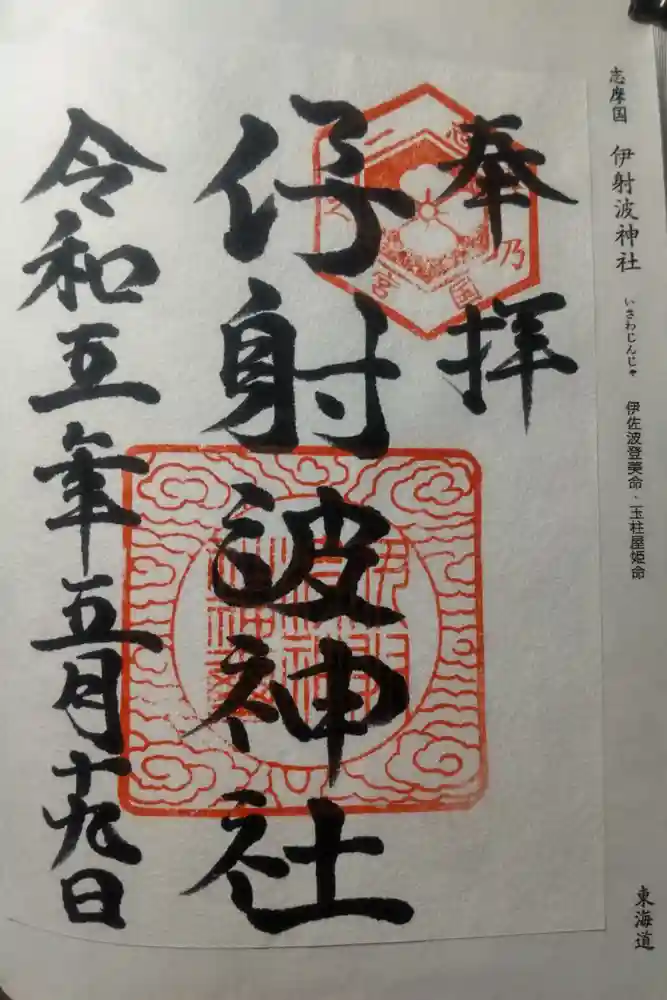 志摩国 伊射波神社 いさわじんじゃ 伊佐波登美命、玉柱屋姫命
東海道
奉拝
志
乃
国
宮
伊射波神社
令和五年五月十九日